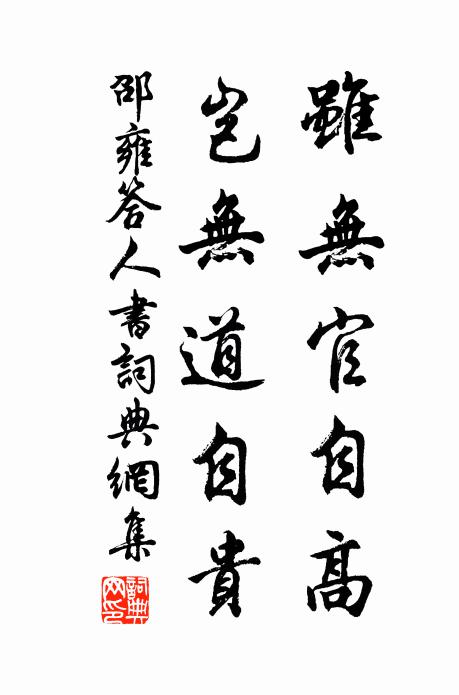 雖無官自高
豈無道自貴
邵雍答人書詞典網集
詞典網印